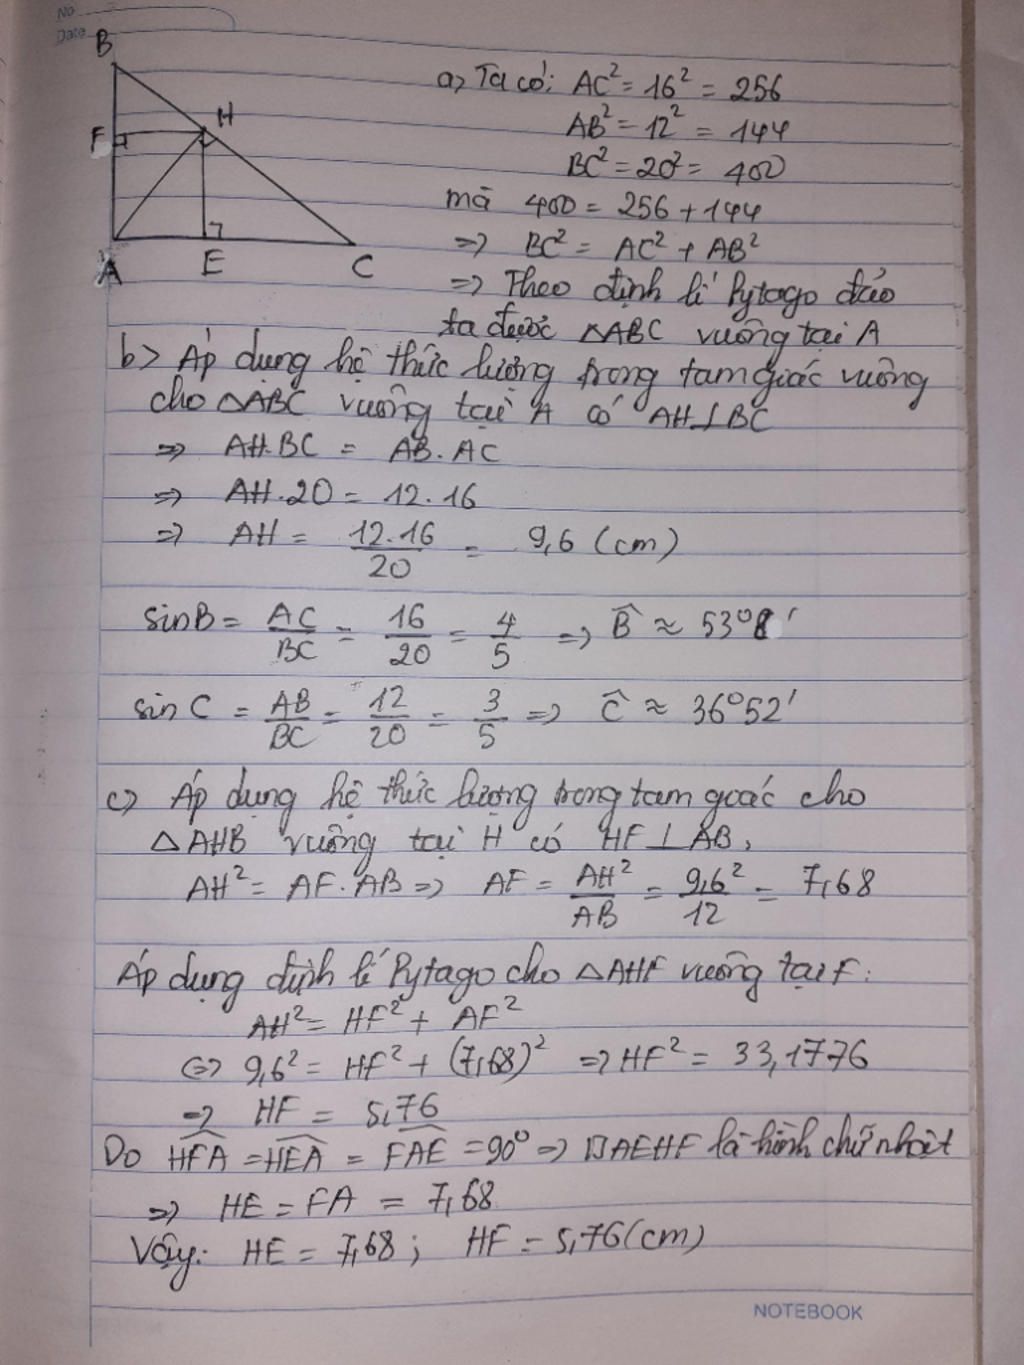 No
Date
B
F
H
A
E
C
a> Ta có: AC² = 16² = 256
AB² = 12² = 144
BC² = 20² = 400
mà 400 = 256 + 144
=> BC² = AC² + AB²
=> Theo định lí Pytago đảo
ta được △ABC vuông tại A
b> Áp dụng hệ thức lượng trong tam giác vuông
cho △ABC vuông tại A có AH⊥BC
=> AH.BC = AB.AC
=> AH.20 = 12.16
=> AH = 12.16/20 = 9,6 (cm)
sinB = AC/BC = 16/20 = 4/5 => B̂ ≈ 53°8'
sin C = AB/BC = 12/20 = 3/5 => Ĉ ≈ 36°52'
c) Áp dụng hệ thức lượng trong tam goác cho
△AHB vuông tại H có HF⊥AB,
AH² = AF.AB => AF = AH²/AB = 9,6²/12 = 7,68
Áp dụng định lí Pytago cho △AHF vuông tại F:
AH² = HF² + AF²
<=> 9,6² = HF² + (7,68)² => HF² = 33,1776
=> HF = 5,76
Do HFA = HEA = FAE = 90° => □AEHF là hình chữ nhật
=> HE = FA = 7,68
Vậy: HE = 7,68 ; HF = 5,76 (cm)
NOTEBOOK